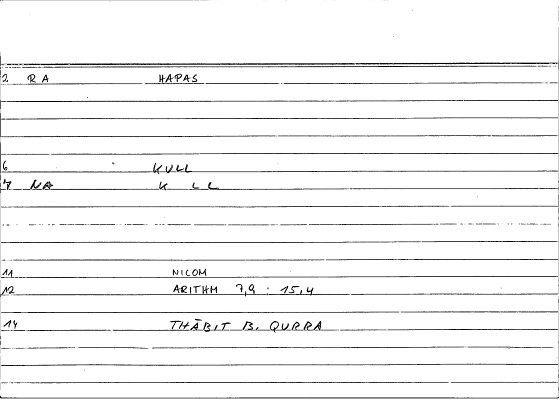 2 RA HAPAS
6 KULL
7 NA K LL
11 NICOM
12 ARITHM 7,9 : 15,4
14 THĀBIT B. QURRA